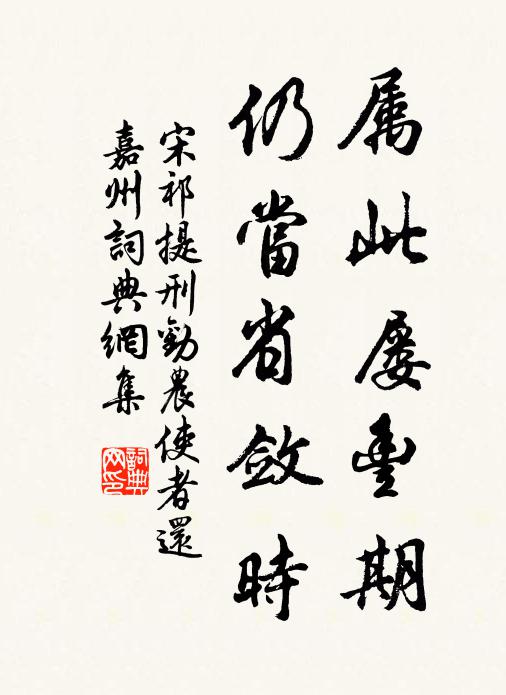 属此屡豊期
仍當省斂時
宋祁提刑勸農使者還
嘉州詞典網集
詞典网印